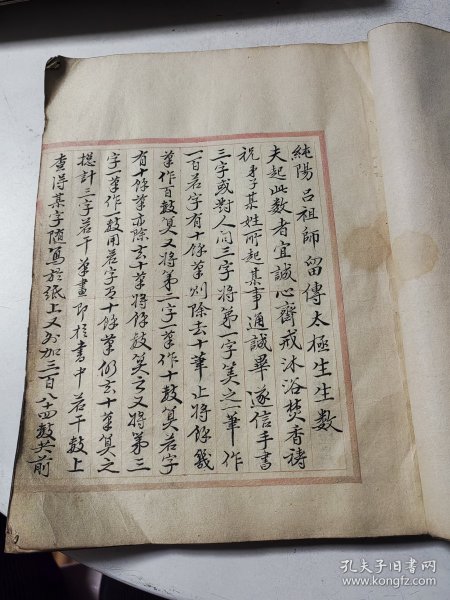 純陽 呂祖師 留傳太極生生数
夫起此数者宜誠心齋戒沐浴焚香禱
祝身子某姓所起某事通誠畢遂信手書
三字或對人问三字将第一字筭之一筆作
一百若字有十餘筆则除去十筆止将餘幾
筆作百数算又将第二字一筆作十数算若字
有十餘筆亦除去十筆将餘数算之又将第三
字一筆作一数用若字有十餘筆仍去十筆算之
揔計三字若干筆畫即於書中若干数上
查得某字随寫於纸上又另加三百八十四数共前
孔夫子旧书网
www.kongfz.com